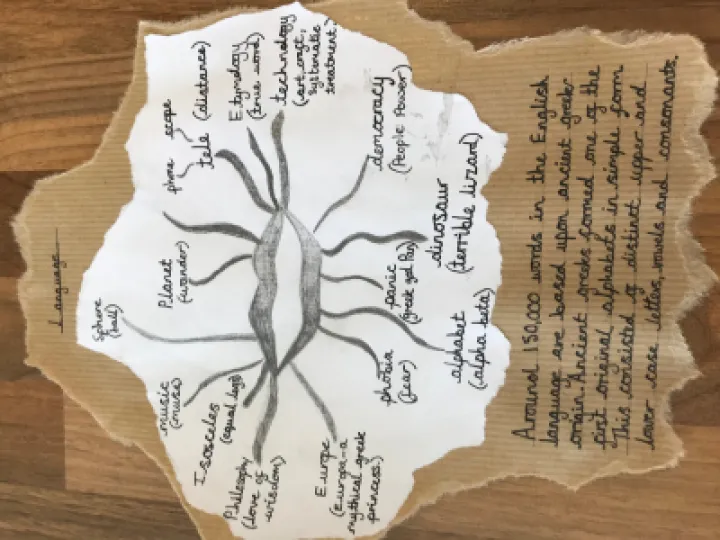 Language
Sphere
(ball)
music
(muse)
Planet
(wander)
phone scope
tele (distance)
Isosceles
(equal legs)
Philosophy
(love of
wisdom)
Etymology
(true word)
technology
(art, craft,
systematic
treatment.)
Europe
(Europa-a
mythical greek
princess.)
phobia
(fear)
panic
(greek god Pan)
democracy
(People Power)
dinosaur
(terrible lizard)
alphabet
(alpha beta)
Around 150,000 words in the English
language are based upon ancient greek
origin. Ancient greeks formed one of the
first original alphabets in simple form
This consisted of distinct upper and
lower case letters, vowels and consonants.